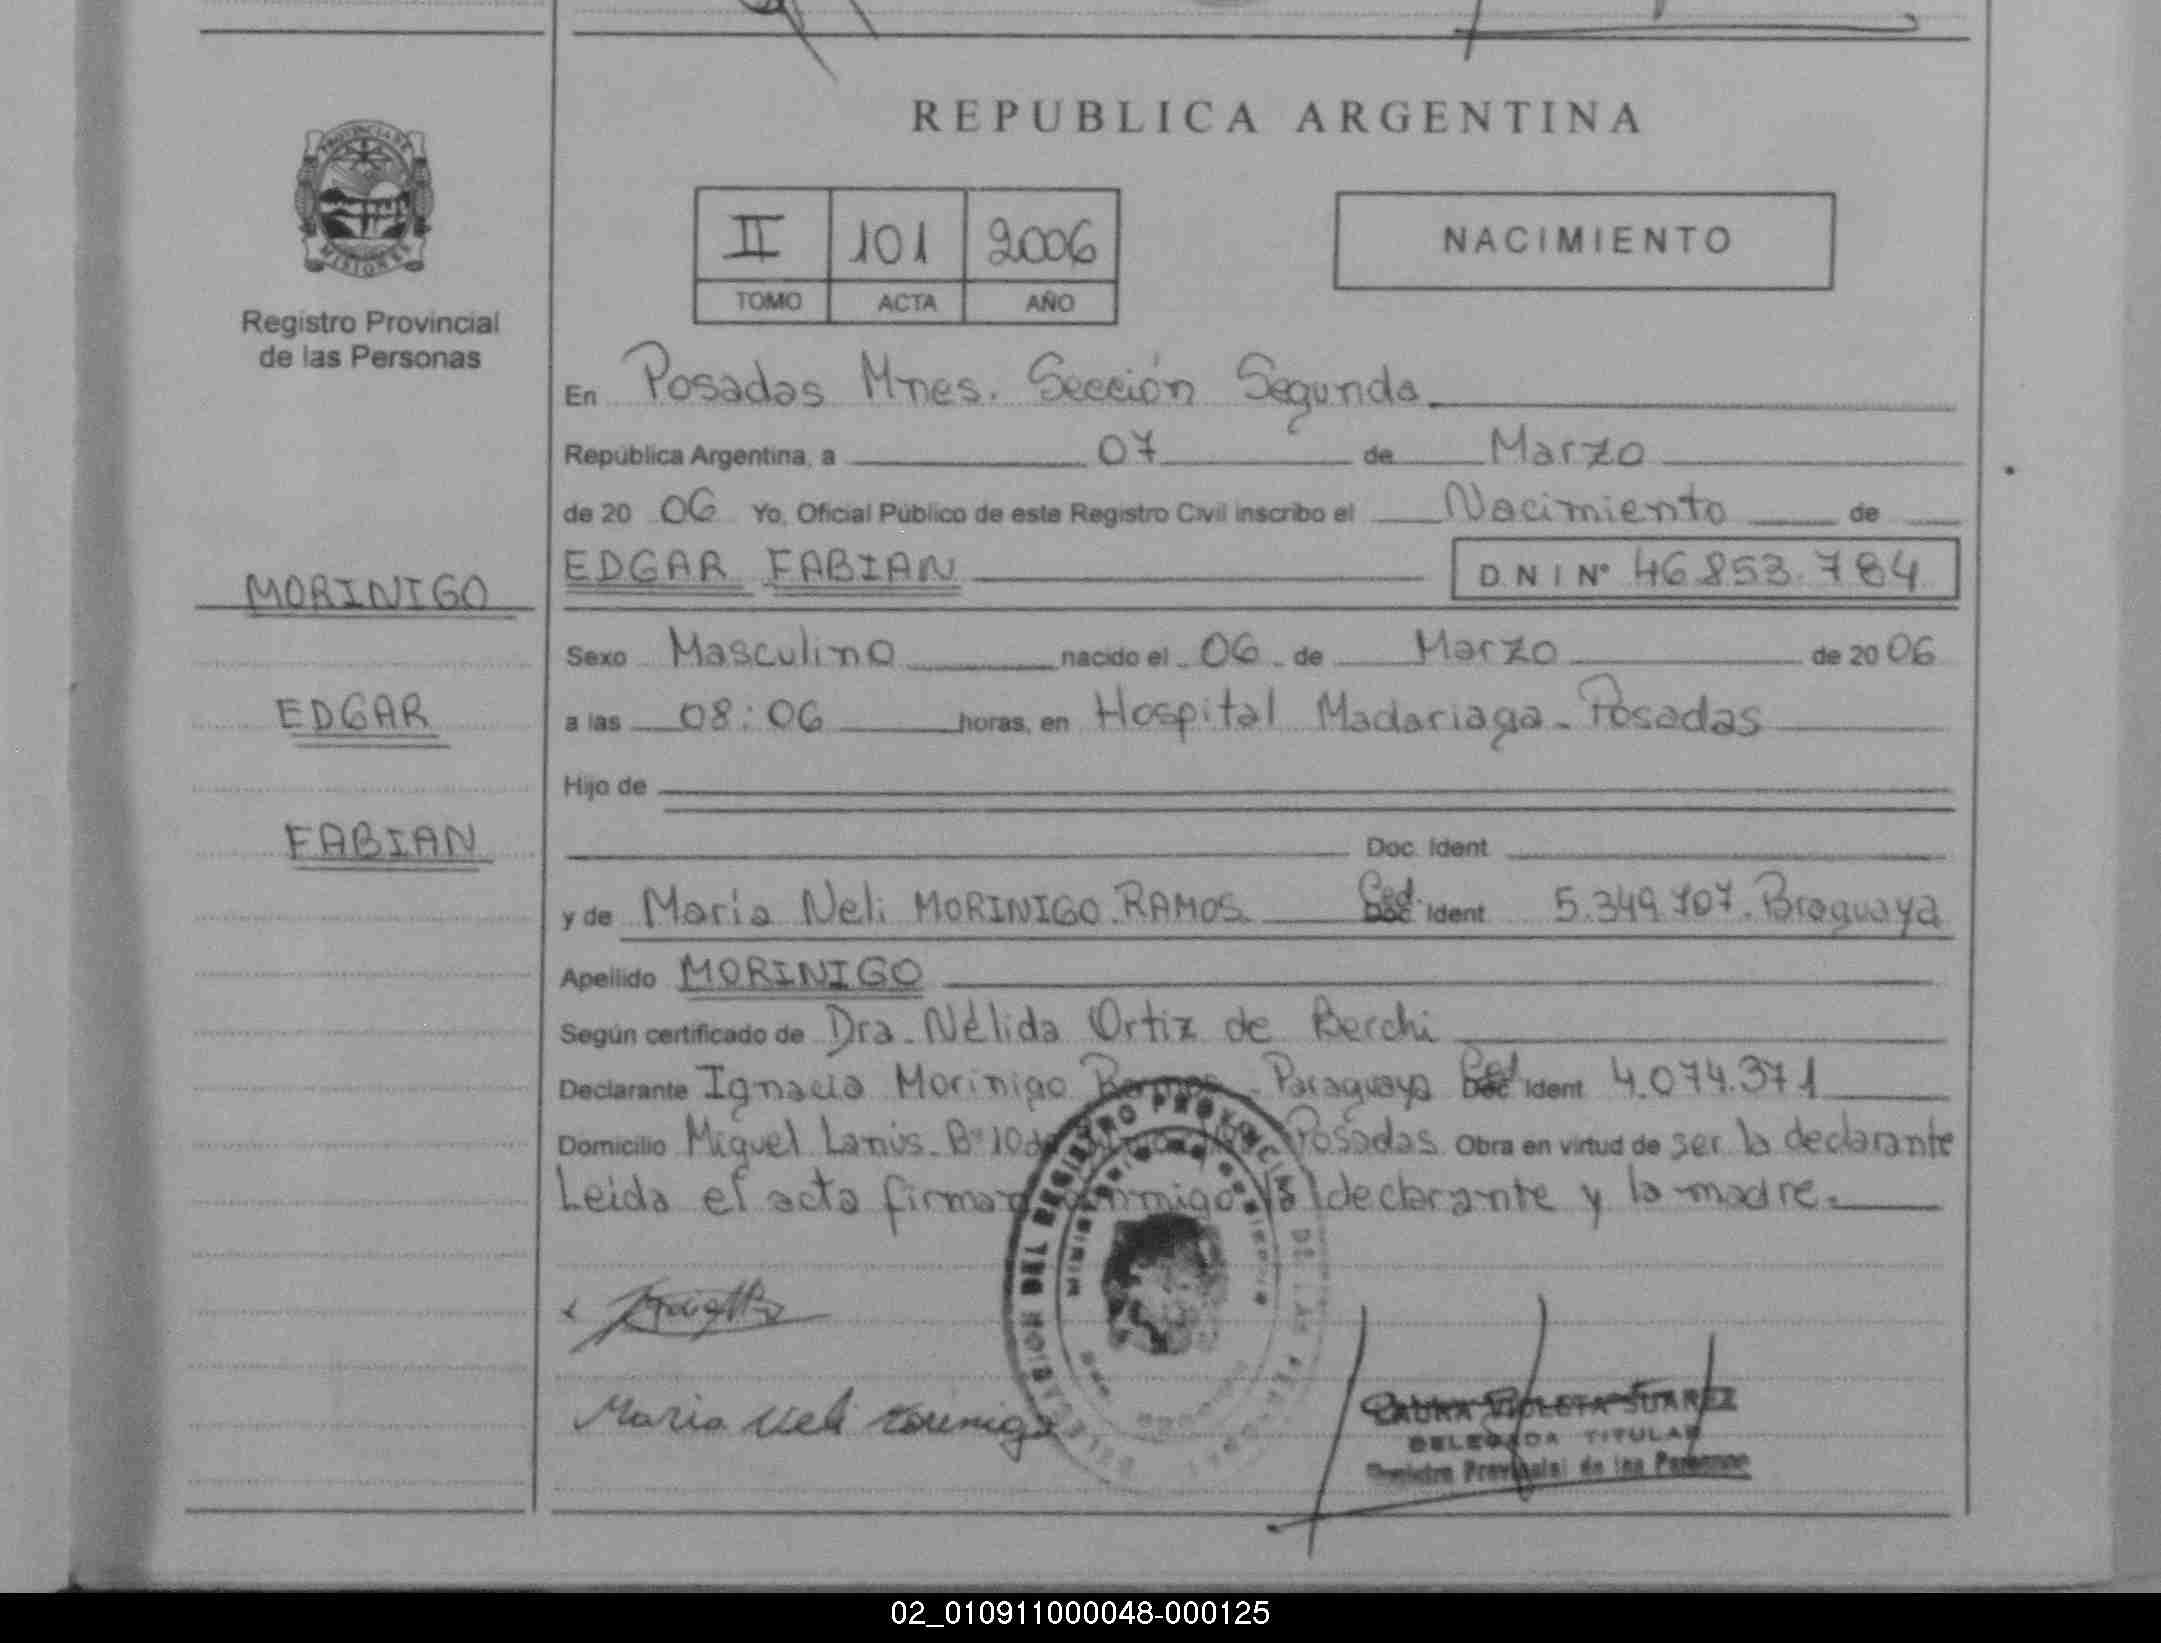 REPUBLICA ARGENTINA
PROVINCIA DE
MISIONES
Registro Provincial
de las Personas
II 101 2006
TOMO ACTA AÑO
NACIMIENTO
En Posadas Mnes. Sección Segunda
República Argentina, a 07 de Marzo
de 20 06 Yo, Oficial Público de este Registro Civil inscribo el Nacimiento de
EDGAR FABIAN DNI Nº 46.853.784
MORINIGO
EDGAR
FABIAN
Sexo Masculino nacido el 06 de Marzo de 20 06
a las 08:06 horas, en Hospital Madariaga - Posadas
Hijo de
Doc. Ident
y de María Neli MORINIGO RAMOS Ced Doc Ident 5.349.707.
Apellido MORINIGO
Según certificado de Dra. Nélida Ortiz de Berchi
Declarante Ignacia Morinigo Ramos - Paraguaya Ced Doc Ident 4.074.371
Domicilio Miguel Lanús - Bº 10 Posadas Obra en virtud de ser la declarante
Leida el acta firman conmigo la declarante y la madre.
DEL REGISTRO PROVINCIAL DE LAS
Maria Neli
LAURA VIOLETA SUAREZ
DELEGADA TITULAR
Registro Provincial de las Personas
02_010911000048-000125